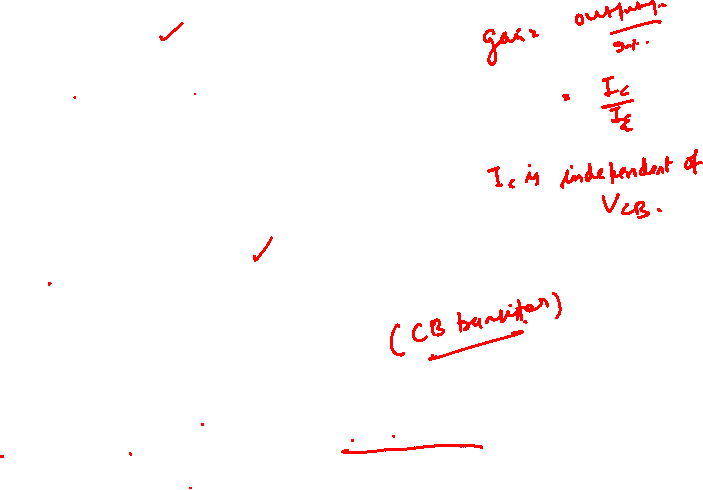 gain output
I_C
I_E
I_C is independent of
V_CB.
(CB transistor)